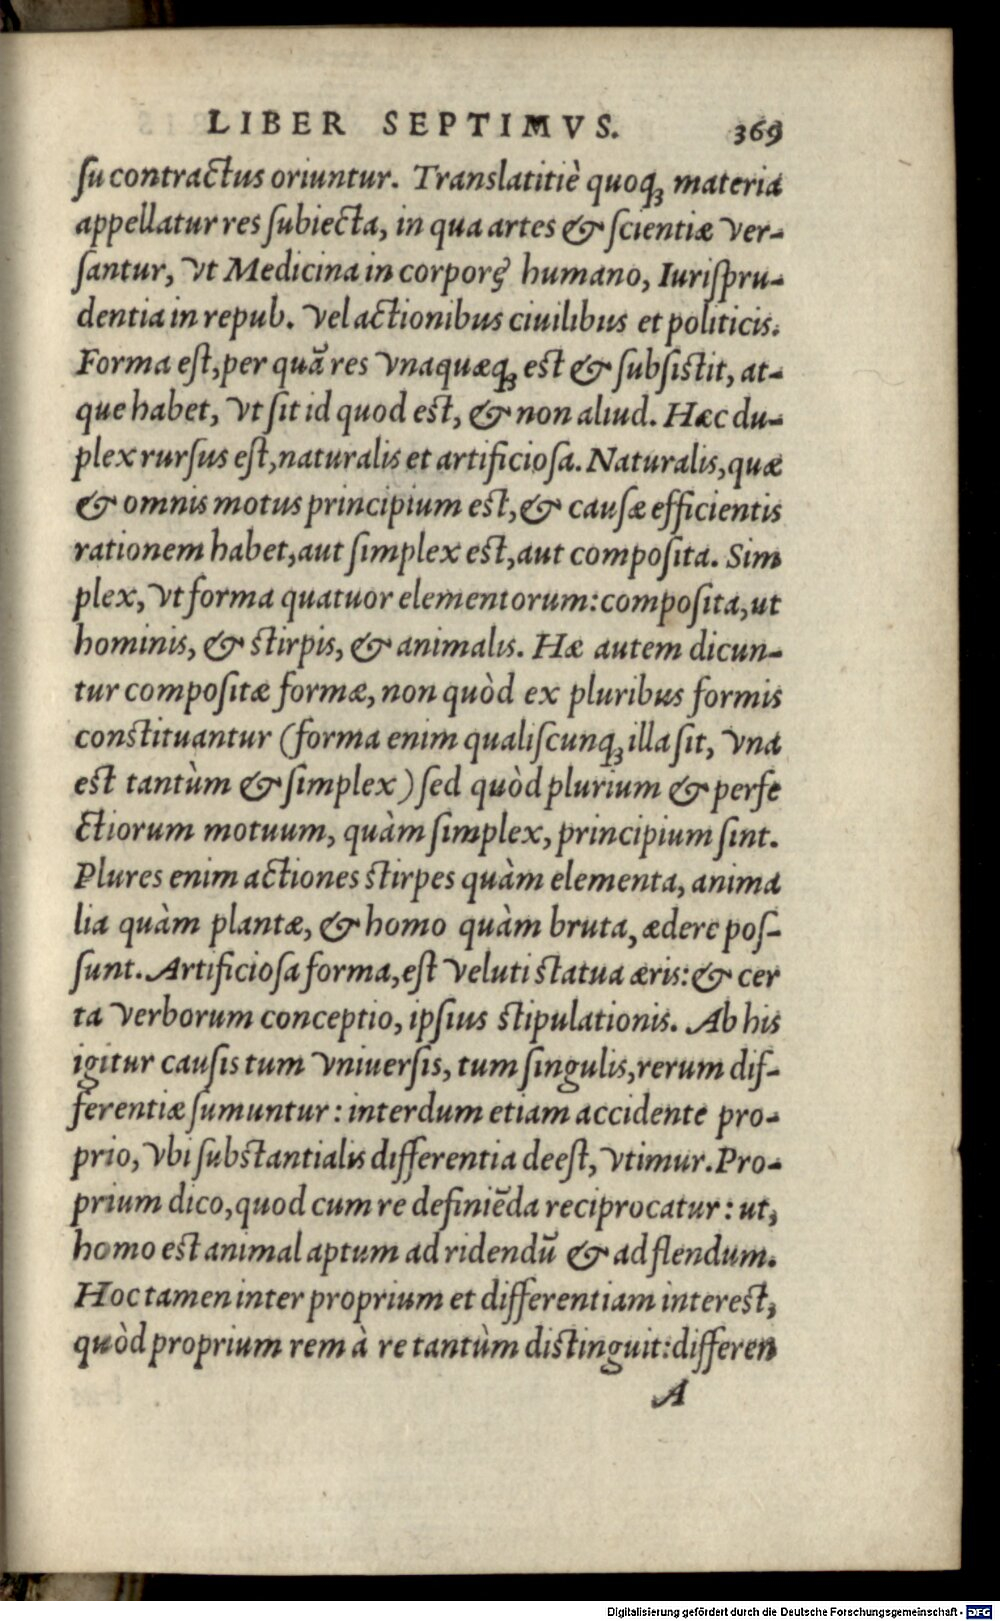 LIBER SEPTIMVS. 369
ſu contractus oriuntur. Translatitiè quoq; materia
appellatur res ſubiecta, in qua artes & ſcientiæ ver-
ſantur, vt Medicina in corporę humano, Iuriſpru-
dentia in repub. vel actionibus ciuilibus et politicis.
Forma eſt, per quã res vnaquæq; eſt & ſubſiſtit, at-
que habet, vt ſit id quod eſt, & non aliud. Hæc du-
plex rurſus eſt, naturalis et artificioſa. Naturalis, quæ
& omnis motus principium eſt, & cauſæ efficientis
rationem habet, aut ſimplex eſt, aut compoſita. Sim
plex, vt forma quatuor elementorum: compoſita, ut
hominis, & ſtirpis, & animalis. Hæ autem dicun-
tur compoſitæ formæ, non quòd ex pluribus formis
conſtituantur (forma enim qualiſcunq; illa ſit, vna
eſt tantùm & ſimplex) ſed quòd plurium & perfe
ctiorum motuum, quàm ſimplex, principium ſint.
Plures enim actiones ſtirpes quàm elementa, anima
lia quàm plantæ, & homo quàm bruta, ædere poſ-
ſunt. Artificioſa forma, eſt veluti ſtatua æris: & cer
ta verborum conceptio, ipſius ſtipulationis. Ab his
igitur cauſis tum vniuerſis, tum ſingulis, rerum dif-
ferentiæ ſumuntur: interdum etiam accidente pro-
prio, vbi ſubſtantialis differentia deeſt, vtimur. Pro-
prium dico, quod cum re definiẽda reciprocatur: ut,
homo eſt animal aptum ad ridendũ & ad flendum.
Hoc tamen inter proprium et differentiam intereſt,
quòd proprium rem à re tantùm diſtinguit: differen
A
Digitalisierung gefördert durch die Deutsche Forschungsgemeinschaft - DFG